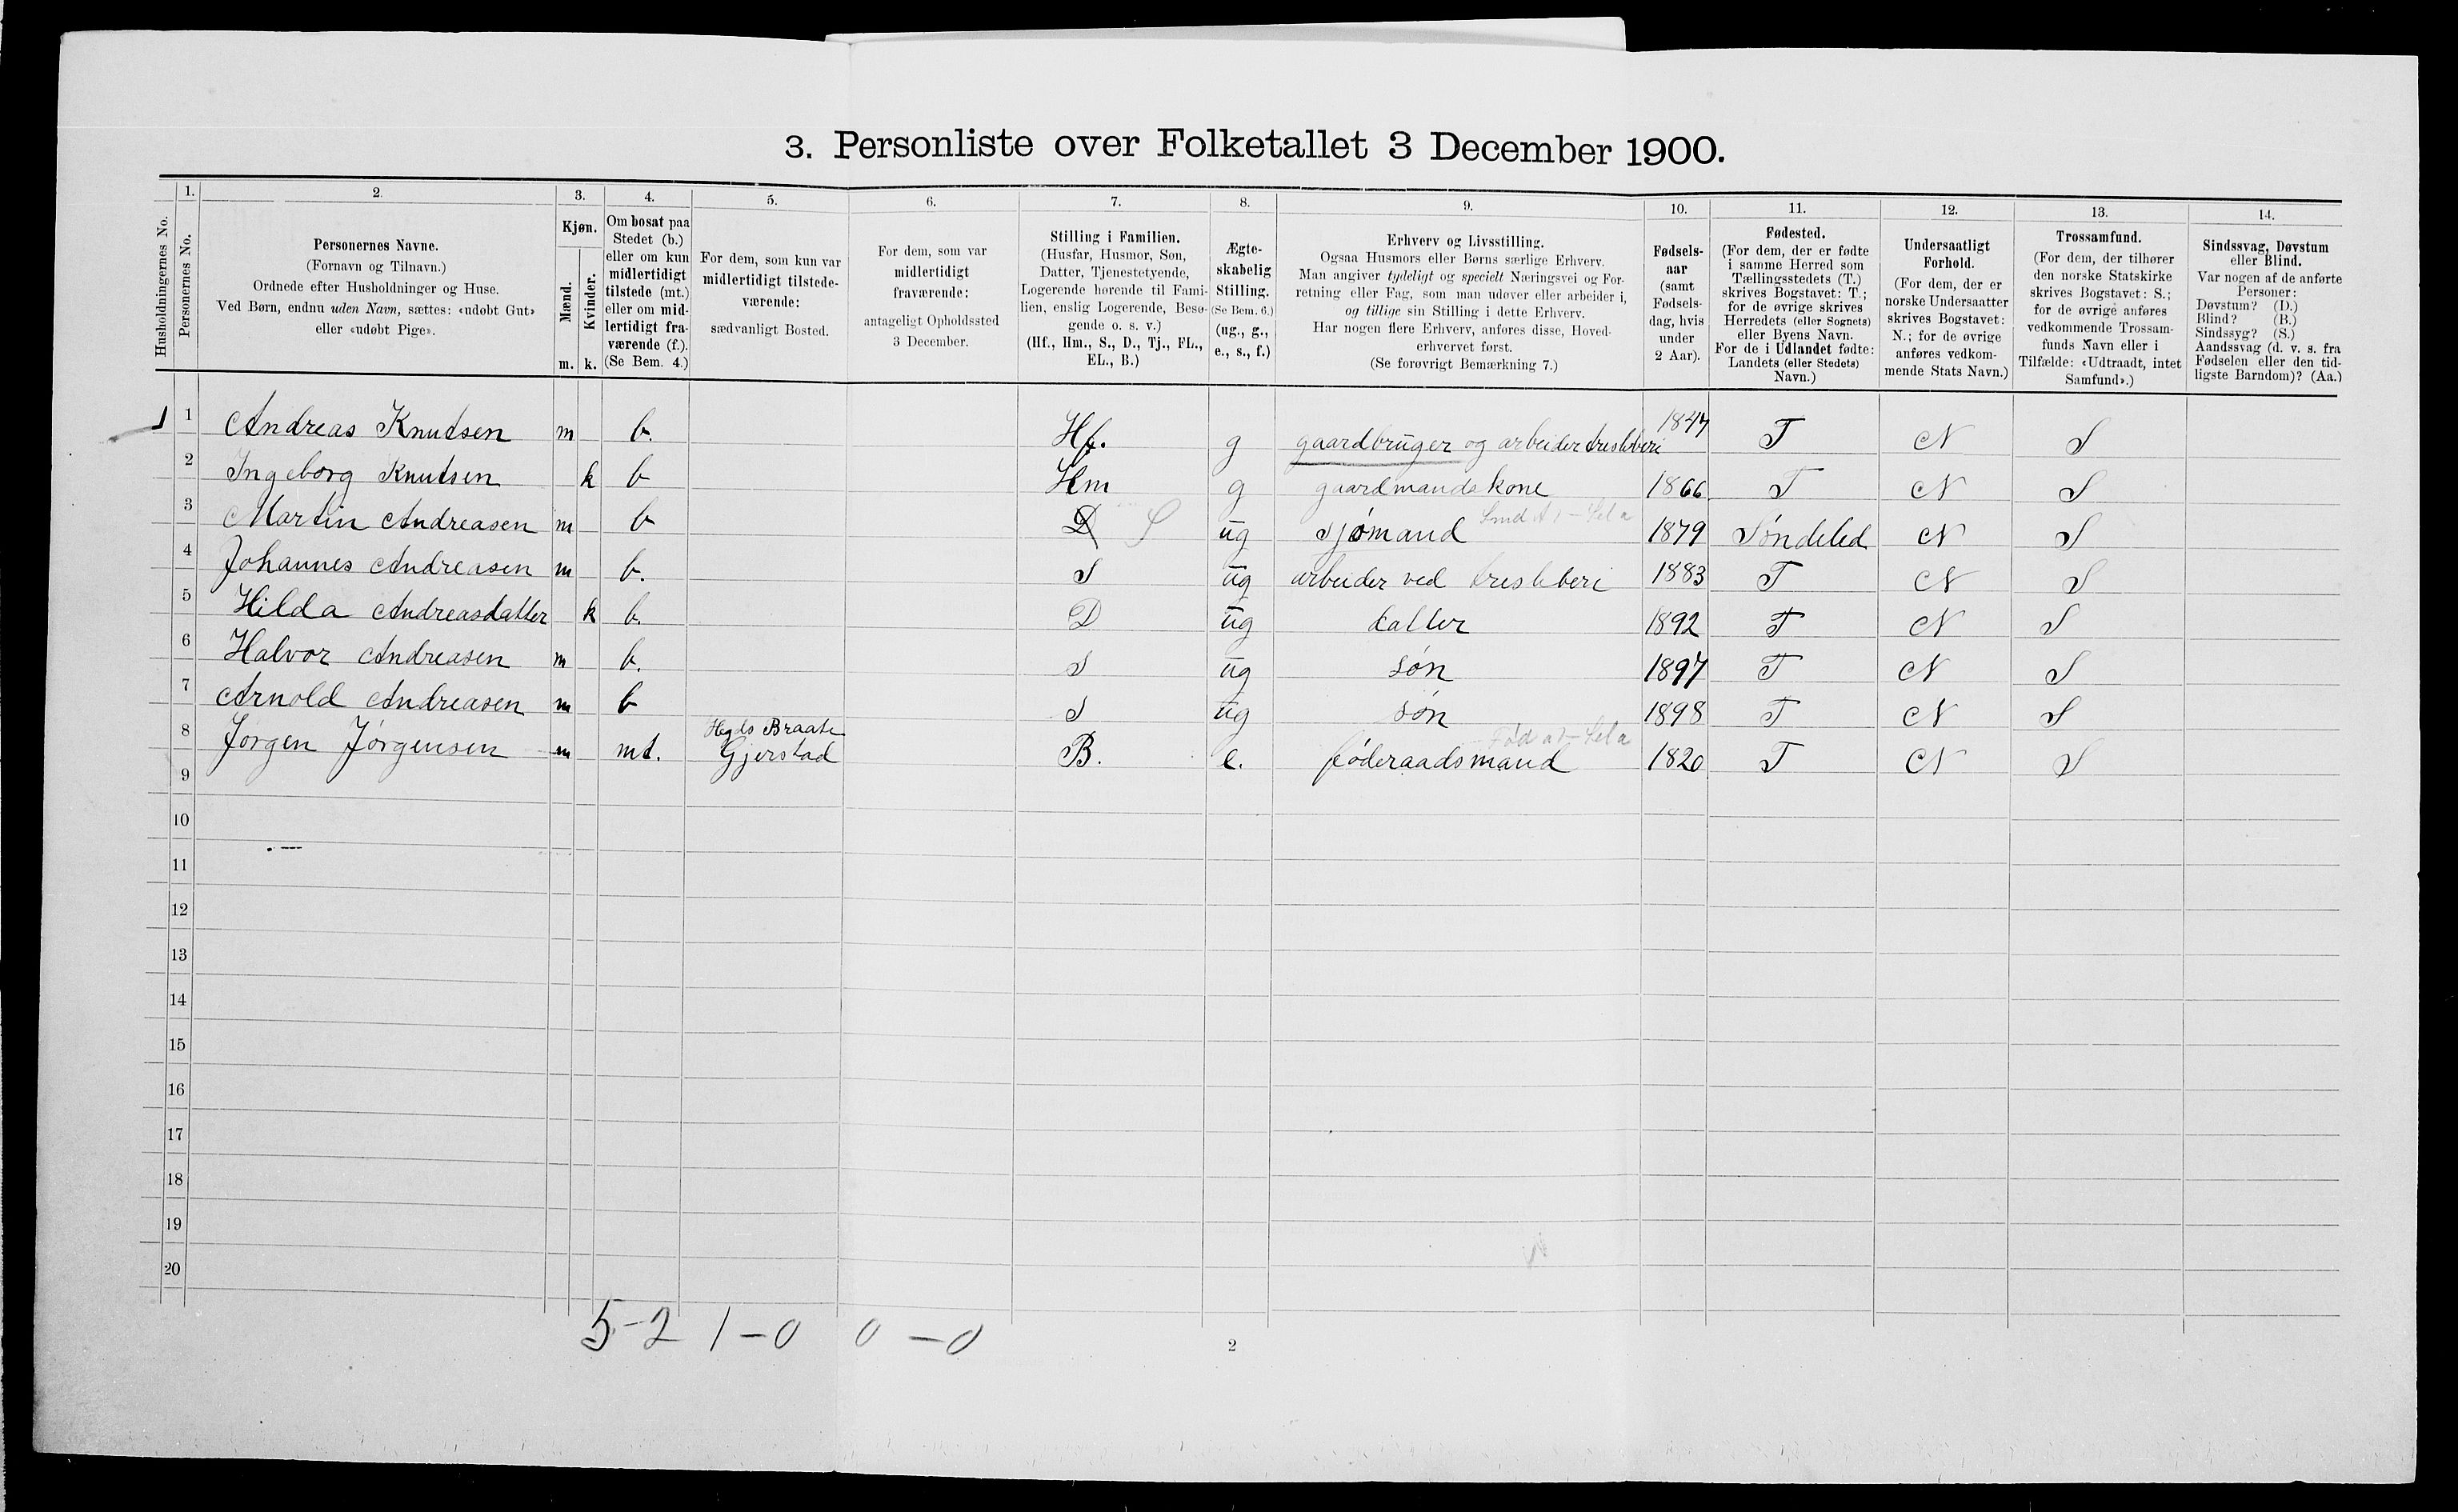 3. Personliste over Folketallet 3 December 1900.
1. 2. 3. 4. 5. 6. 7. 8. 9. 10. 11. 12. 13. 14.
Husholdningernes No.
Personernes No.
Personernes Navne.
(Fornavn og Tilnavn.)
Ordnede efter Husholdninger og Huse.
Ved Børn, endnu uden Navn, sættes: «udøbt Gut»
eller «udøbt Pige».
Kjøn.
Mænd.
Kvinder.
m. k.
Om bosat paa
Stedet (b.)
eller om kun
midlertidigt
tilstede (mt.)
eller om mid-
lertidigt fra-
værende (f.).
(Se Bem. 4.)
For dem, som kun var
midlertidigt tilstede-
værende:
sædvanligt Bosted.
For dem, som var
midlertidigt
fraværende:
antageligt Opholdssted
3 December.
Stilling i Familien.
(Husfar, Husmor, Søn,
Datter, Tjenestetyende,
Logerende hørende til Fami-
lien, enslig Logerende, Besø-
gende o. s. v.)
(Hf., Hm., S., D., Tj., FL.,
EL., B.)
Ægte-
skabelig
Stilling.
(Se Bem. 6.)
(ug., g.,
e., s., f.)
Erhverv og Livsstilling.
Ogsaa Husmors eller Børns særlige Erhverv.
Man angiver tydeligt og specielt Næringsvei og For-
retning eller Fag, som man udøver eller arbeider i,
og tillige sin Stilling i dette Erhverv.
Har nogen flere Erhverv, anføres disse, Hoved-
erhvervet først.
(Se forøvrigt Bemærkning 7.)
Fødsels-
aar
(samt
Fødsels-
dag, hvis
under
2 Aar).
Fødested.
(For dem, der er fødte
i samme Herred som
Tællingsstedets (T.)
skrives Bogstavet: T.;
for de øvrige skrives
Herredets (eller Sognets)
eller Byens Navn.
For de i Udlandet fødte:
Landets (eller Stedets)
Navn.)
Undersaatligt
Forhold.
(For dem, der er
norske Undersaatter
skrives Bogstavet:
N.; for de øvrige
anføres vedkom-
mende Stats Navn.)
Trossamfund.
(For dem, der tilhører
den norske Statskirke
skrives Bogstavet: S.;
for de øvrige anføres
vedkommende Trossam-
funds Navn eller i
Tilfælde: «Udtraadt, intet
Samfund».)
Sindssvag, Døvstum
eller Blind.
Var nogen af de anførte
Personer:
Døvstum? (D.)
Blind? (B.)
Sindssyg? (S.)
Aandssvag (d. v. s. fra
Fødselen eller den tid-
ligste Barndom)? (Aa.)
1 Andreas Knutsen m b. Hf. g gaardbruger og arbeider træsliberi 1847 T N S
2 Ingeborg Knutsen k b Hm g gaardmands kone 1866 T N S
3 Martin Andreasen m b D S ug sjømand 1879 Søndeled N S
4 Johannes Andreasen m b. S ug arbeider ved træsliberi 1883 T N S
5 Hilda Andreasdatter k b. D ug datter 1892 T N S
6 Halvor Andreasen m b. S ug søn 1897 T N S
7 Arnold Andreasen m b S ug søn 1898 T N S
8 Jørgen Jørgensen m mt. Braate Gjerstad B. e. føderaadsmand 1820 T N S
9
10
11
12
13
14
15
16
17
18
19
20
5-2 1-0 0-0
2